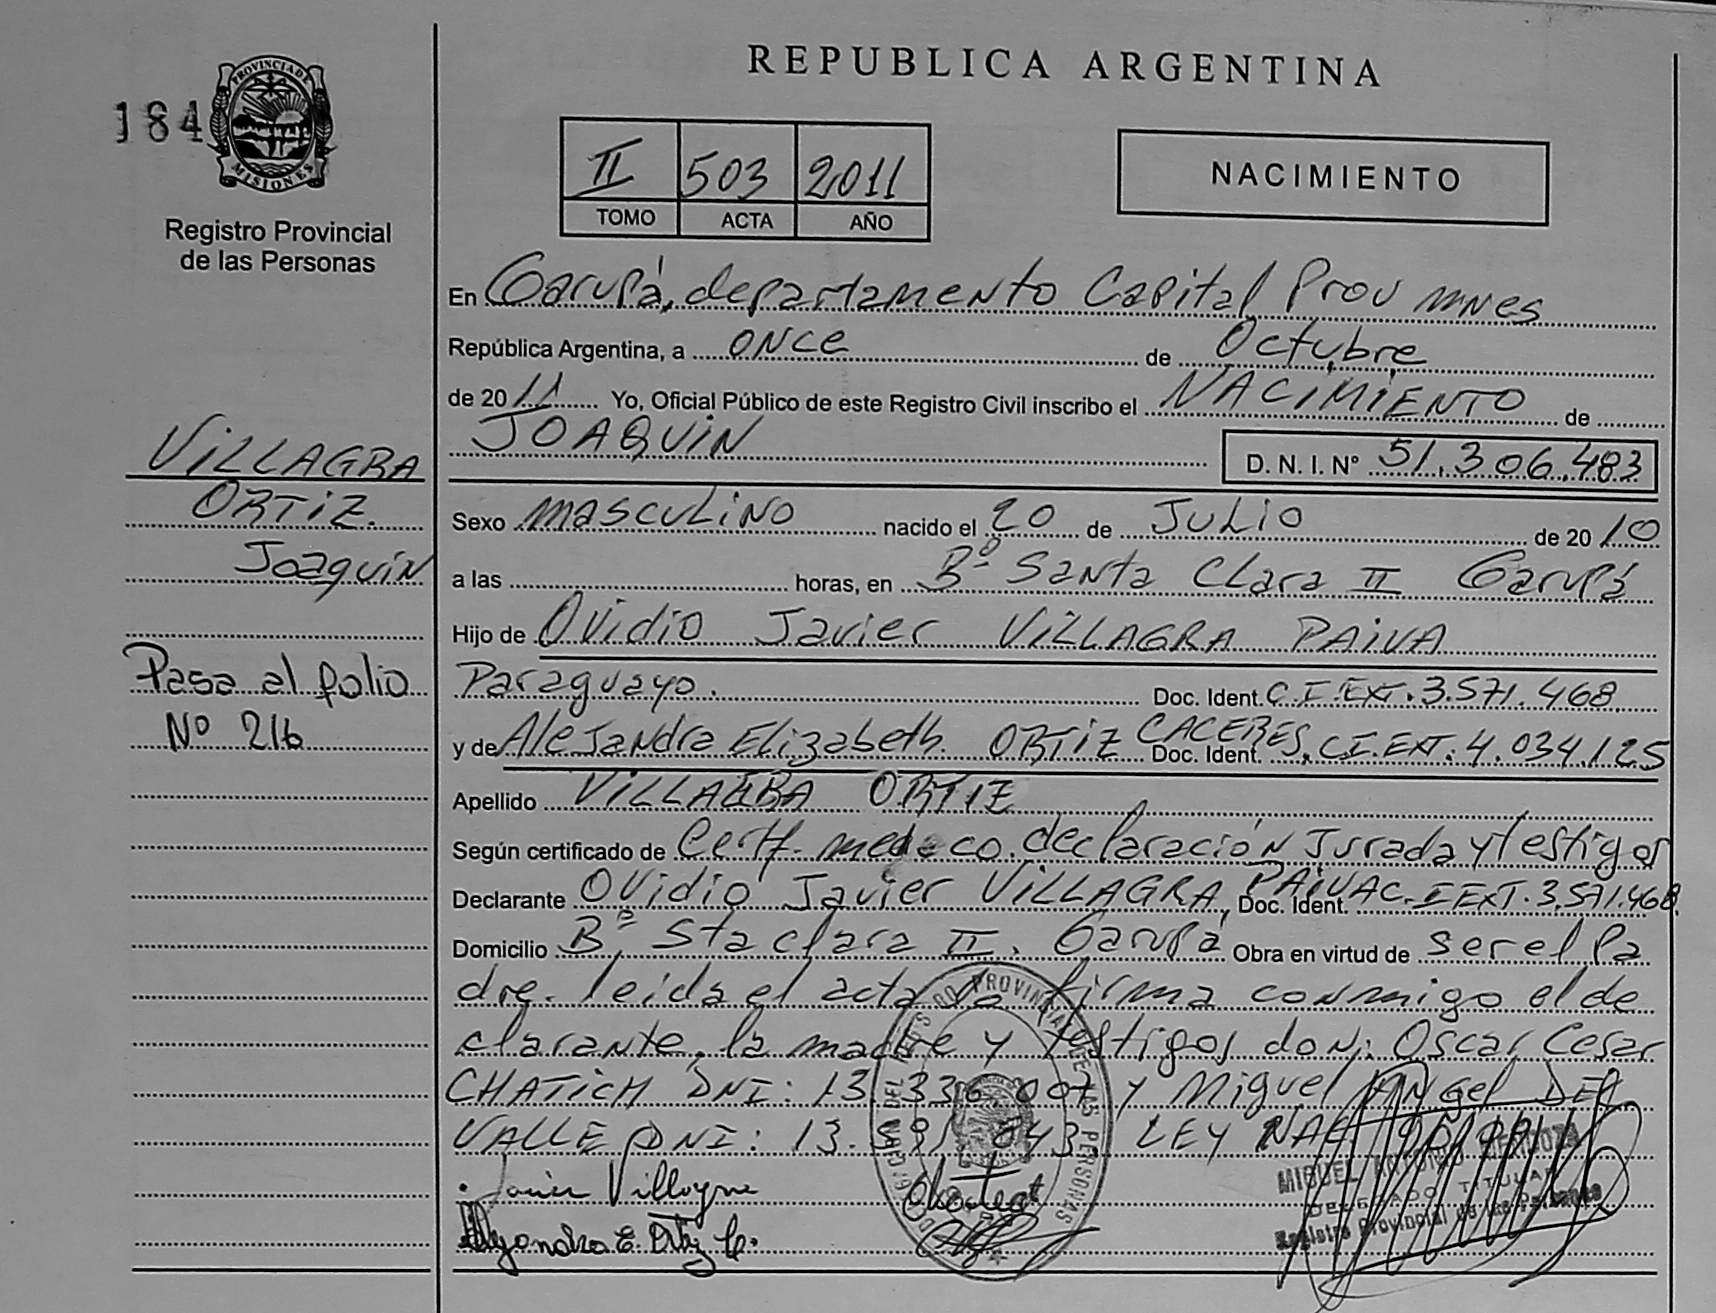 REPUBLICA ARGENTINA
184
PROVINCIA DE
MISIONES
Registro Provincial
de las Personas
II 503 2011
TOMO ACTA AÑO
NACIMIENTO
En Garupá, departamento Capital Prov mnes
República Argentina, a once de Octubre
de 2011 Yo, Oficial Público de este Registro Civil inscribo el NACIMIENTO de
JOAQUIN D. N. I. Nº 51.306.483
VILLAGRA
ORTIZ
Joaquin
Pasa al folio
Nº 216
Sexo masculino nacido el 20 de JULIO de 2010
a las horas, en Bº Santa Clara II Garupá
Hijo de Ovidio Javier VILLAGRA PAIVA
Paraguayo. Doc. Ident. C.I.EXT. 3.571.468
y de Alejandra Elizabeth ORTIZ CACERES, Doc. Ident. C.I.EXT. 4.034.125
Apellido VILLAGRA ORTIZ
Según certificado de Certf. medico, declaración Jurada y testigos
Declarante Ovidio Javier VILLAGRA PAIVA Doc. Ident. C.I EXT. 3.571.468
Domicilio Bº Sta clara II. Garupá Obra en virtud de ser el Pa
dre. leida el acta la firma conmigo el de
clarante, la madre y testigos don: Oscar Cesar
CHATICH DNI: 13.336.007 y Miguel ANGEL DEL
VALLE DNI: 13. LEY NAC
Javier Villagra
Alejandra E. Ortiz C.
REGISTRO PROVINCIAL DE LAS PERSONAS
MIGUEL ANTONIO MENDOZA
DELEGADO TITULAR
Registro Provincial de las Personas